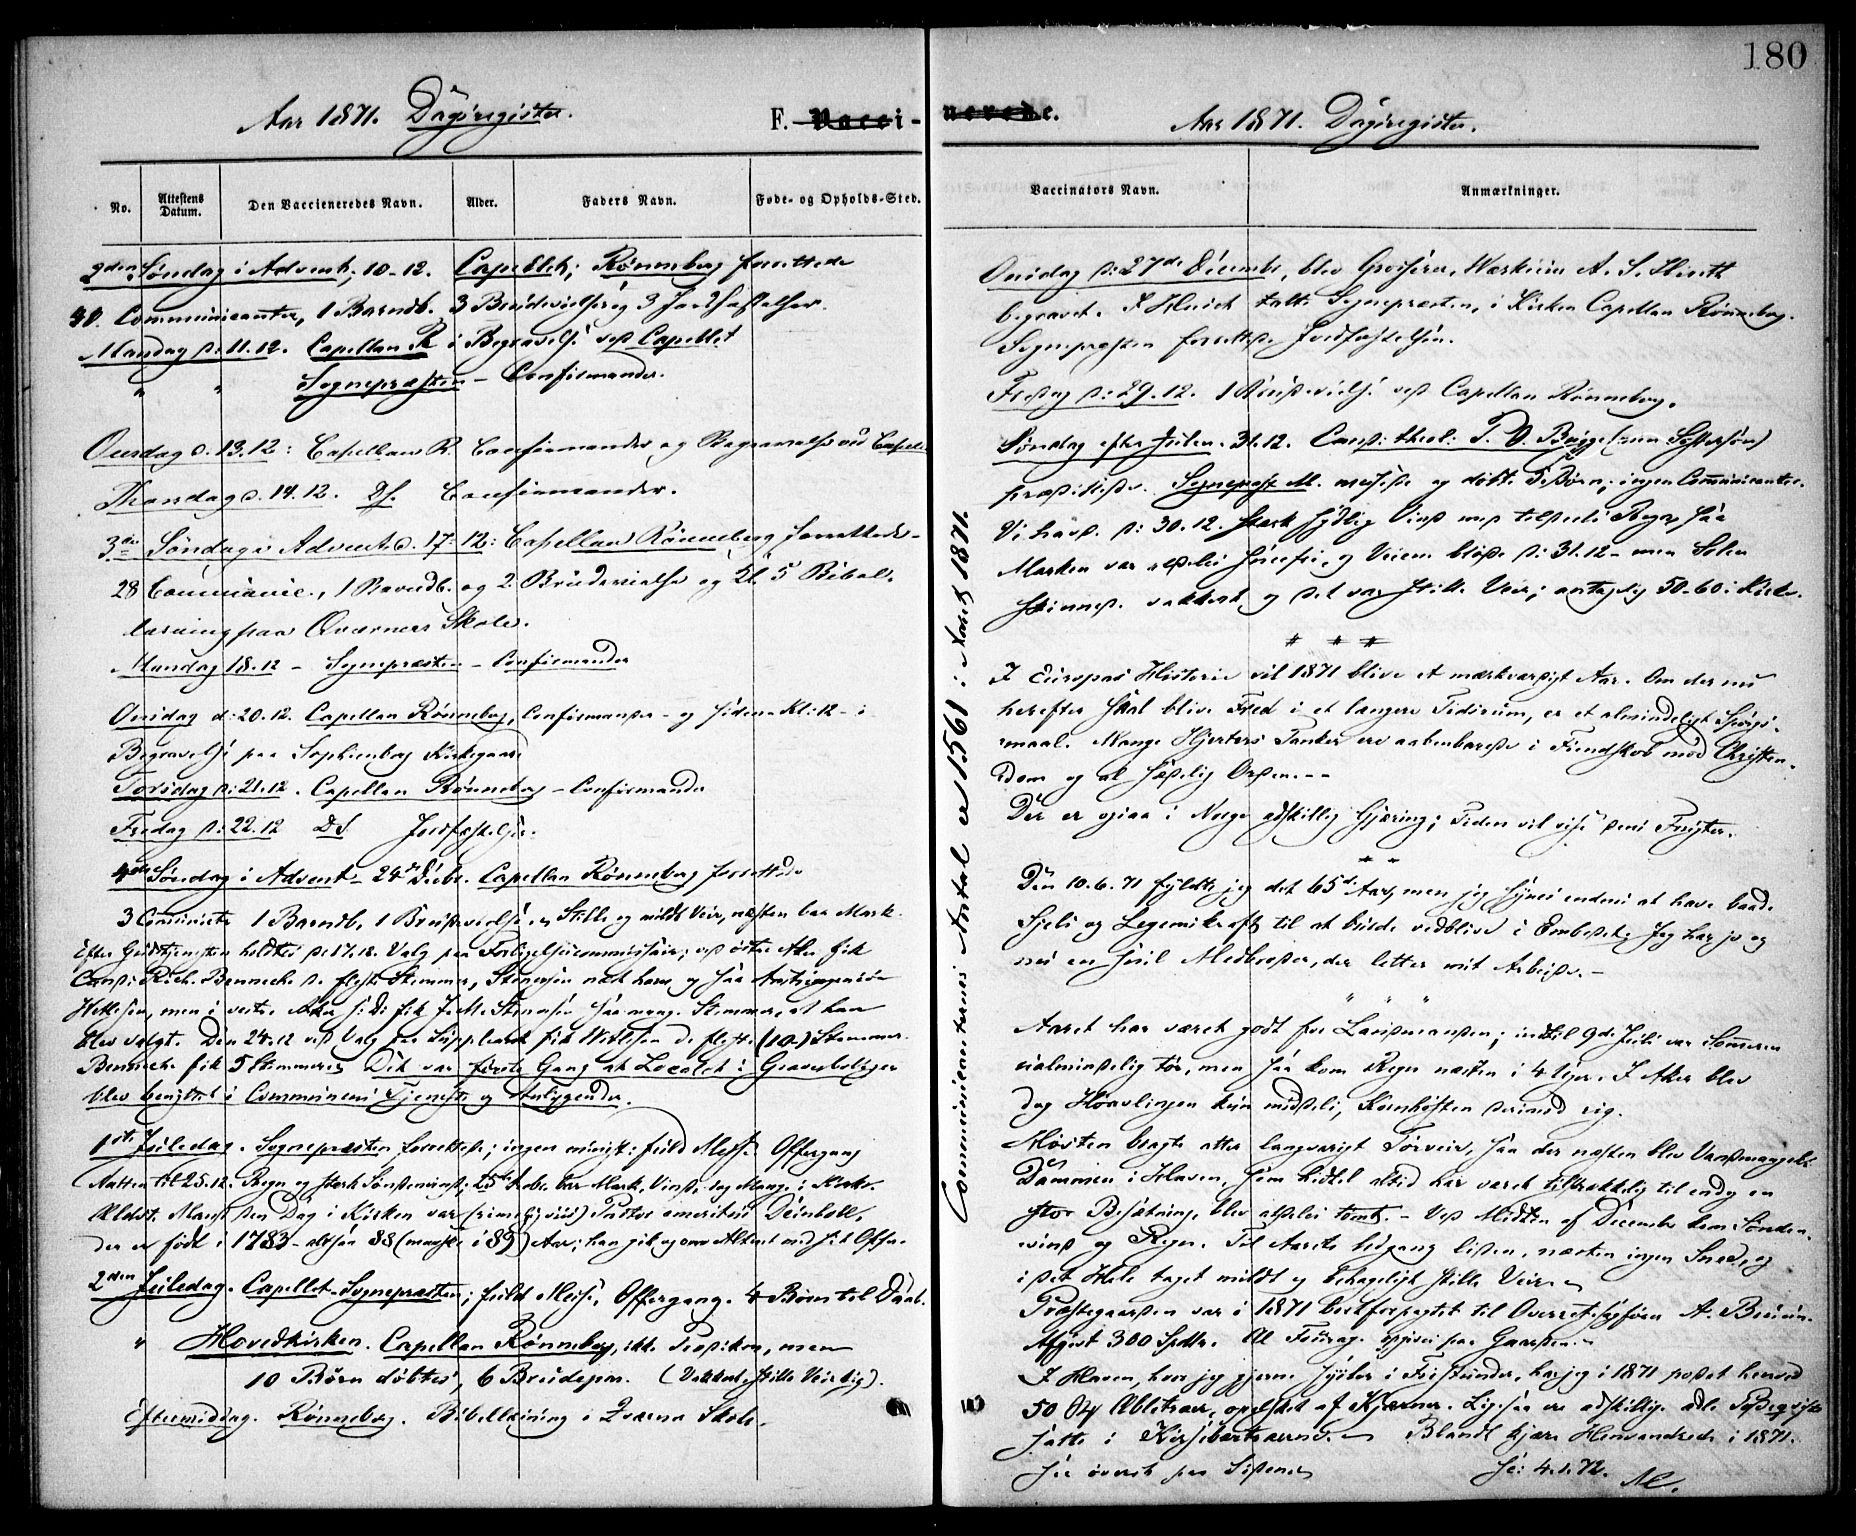 180
Aar 1871. Dagsregister.
F. Vacci-
nerede.
Aar 1871. Dagsregister.
No. Attestens Datum. Den Vaccieneredes Navn. Alder. Faders Navn. Føde- og Opholds-Sted.
2den Søndag i Advent, 10-12. Capellet; Rønneberg forrettede
Communicanter, 1 Barnedb. 3 Brudevielser og 3 Jordfæstelser.
Mandag d: 11.12. Capellan R i Begravelse ved Capellet
" " Sognepræsten - Confirmander.
Onsdag d. 13.12: Capellan R. Confirmander og Begravelse ved Capell.
Thorsdag d. 14.12. Ds. Confirmander.
3die Søndag i Advent d. 17-12: Capellan Rönneberg forrettede -
28 Communic., 1 Barnedb. og 2 Brudevielse og Kl. 5 Bibel-
læsning paa Qværners Skole.
Mandag 18.12 - Sognepræsten - Confirmander
Onsdag d: 20.12. Capellan Rønneberg, Confirmander - og siden - Kl: 12 - i
Begravelse paa Sophienberg Kirkegaard
Torsdag d: 21.12. Capellan Rønneberg - Confirmander
Fredag d: 22.12 DS. Jordfæstelser.
4de Søndag i Advent - 24de Decbr. Capellan Rønneberg forrettede
3 Communicter 1 Barnedb. 1 Brudevielse - Stille og mildt Veir, næsten bar Mark.
Efter Gudstjenesten holdtes d 17.12. Valg paa Forligelsescommissair; ved østre Aker fik
Cand: Rich. Benneche d. fleste Stemmer, Stenersen næst ham og saa Amtsingeniør
men i vestre Aker fik J. M. Stenersen saa mange Stemmer, at han
blev valgt. Den 24.12 ved Valg paa Suppleant fik de fleste (10) Stemmer.
Benneche fik 5 Stemmer. Det var første Gang at Localet i Graverboliger
blev benyttet i Communens Tjeneste og Anliggender.
1ste Juledag. Sognepræsten forrettede; ingen music: fuld Messe. Offergang
Natten til 25.12. Regn og stærk Søndenvind; 25de Decbr. bar Mark, Vind; dog Mange i Kirke.
Ældste Mand den Dag i Kirken var (rimeligviis) Pastor emeritus Deinboll,
der er født i 1783 - altsaa 88 (maaske i 89) Aar; han gik og om Alteret med sit Offer.
2den Juledag. Capellet - Sognepræsten; fuld Messe, Offergang. 4 Børn til Daab.
" Hovedkirken. Capellan Rønneberg, ikke Præken, men
10 Børn døbtes, 6 Brudepar. (Vakkert, stille Veirlig).
Eftermiddag. Rønneberg. Bibellæsning i Qværne Skole.
Communicanternes Antal er 1561 i Aaret 1871.
Vaccinators Navn. Anmærkninger.
Onsdag d: 27de Decembr, blev Grosserer, Værkeier A. S.
begravet. I Huset talte Sognepræsten, i Kirken Capellan Rønneberg.
Sognepræsten forrettede Jordfæstelsen.
Fredag d: 29.12. 1 Brudevielse ved Capellan Rønneberg.
Søndag efter Julen. 31.12. Cand: theol: Bugge (min Søstersøn)
prædikede. Sognepræst M. messede og døbte 7 Børn; ingen Communicanter.
Vi havd. d: 30.12. stærk sydlig Vind med tildeels Regn, saa
Marken var aldeles sneefri, og Veiene bløde d: 31.12 - men Solen
skinned. vakkert, og det var stille Veir; antagelig 50-60 i Kirke.
# # #
I Europas Historie vil 1871 blive et mærkværdigt Aar. Om der nu
herefter skal blive Fred i et længere Tidsrum, er et almindeligt Spørgs-
maal. Mange Hjerters Tanker ere aabenbarede i Fiendskab mod Christen-
dom og al sædelig Orden. - -
Der er ogsaa i Norge adskillig Gjæring; Tiden vil vise dens Frugter.
" "
Den 10.6.71 fyldte jeg det 65de Aar, men jeg synes endnu at have baade
Sjels og Legemskraft til at kunde vedblive i Embedet; Jeg har jo og
nu en snil Medbroder, der letter mit Arbeide. -
" " "
Aaret har været godt for Landmanden; indtil 9de Juli var Sommeren
ualmindelig tør, men saa kom Regn næsten i 4 Uger. I Aker blev
dog Høavlingen kun middels, Kornhøsten derimod rig.
Høsten bragte atter langvarigt Tørveir, saa der næsten blev Vandmangel.
Dammen i Haven, som hidtil altid har været tilstrækkelig til endog en
stor Besætning, blev aldeles tomt. - Ved Midten af December kom Sønden-
vind og Regn. Til Aarets Udgang liden, næsten ingen Snee, og
i det Hele taget mildt og behageligt stille Veir.
Præstegaarden var i 1871 bortforpagtet til Overretssagfører A.
Afgivt 300 Spdlr. Al Fourage opfores paa Gaarden. -
I Haven, hvor jeg gjerne sysler i Fristunder, har jeg i 1871 podet henved
50 Abletræer, opelsket af Kjærner. Ligesaa ere adskillige ædle Podeqviste
satte i Kirsebærtræerne. - Blandt kjære Henvandrede i 1871.
See øverst paa Siden. d: 4.1.72.
M.